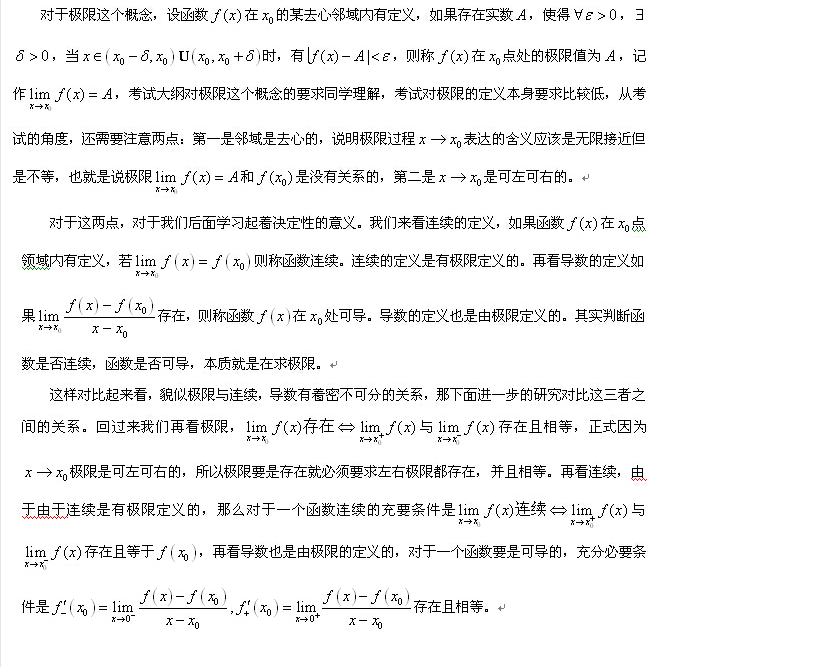 对于极限这个概念，设函数 f(x) 在 x₀ 的某去心邻域内有定义，如果存在实数 A，使得 ∀ε>0，∃
δ>0，当 x∈(x₀−δ,x₀)U(x₀,x₀+δ)时，有|f(x)−A|<ε，则称 f(x) 在 x₀ 点处的极限值为 A，记
作 lim_{x→x₀} f(x)=A，考试大纲对极限这个概念的要求同学理解，考试对极限的定义本身要求比较低，从考
试的角度，还需要注意两点：第一是邻域是去心的，说明极限过程 x→x₀ 表达的含义应该是无限接近但
是不等，也就是说极限 lim_{x→x₀} f(x)=A 和 f(x₀) 是没有关系的，第二是 x→x₀ 是可左可右的。↵
对于这两点，对于我们后面学习起着决定性的意义。我们来看连续的定义，如果函数 f(x) 在 x₀ 点
领域内有定义，若 lim_{x→x₀} f(x)=f(x₀) 则称函数连续。连续的定义是有极限定义的。再看导数的定义如
果 lim_{x→x₀} (f(x)−f(x₀))/(x−x₀) 存在，则称函数 f(x) 在 x₀ 处可导。导数的定义也是由极限定义的。其实判断函
数是否连续，函数是否可导，本质就是在求极限。↵
这样对比起来看，貌似极限与连续，导数有着密不可分的关系，那下面进一步的研究对比这三者之
间的关系。回过来我们再看极限，lim_{x→x₀} f(x)存在⇔lim_{x→x₀⁺} f(x) 与 lim_{x→x₀⁻} f(x) 存在且相等，正式因为
x→x₀ 极限是可左可右的，所以极限要是存在就必须要求左右极限都存在，并且相等。再看连续，由
于由于连续是有极限定义的，那么对于一个函数连续的充要条件是 lim_{x→x₀} f(x)连续⇔lim_{x→x₀⁺} f(x) 与
lim_{x→x₀⁻} f(x) 存在且等于 f(x₀)，再看导数也是由极限的定义的，对于一个函数要是可导的，充分必要条
件是 f₋′(x₀)=lim_{x→0⁻} (f(x)−f(x₀))/(x−x₀), f₊′(x₀)=lim_{x→0⁺} (f(x)−f(x₀))/(x−x₀) 存在且相等。↵